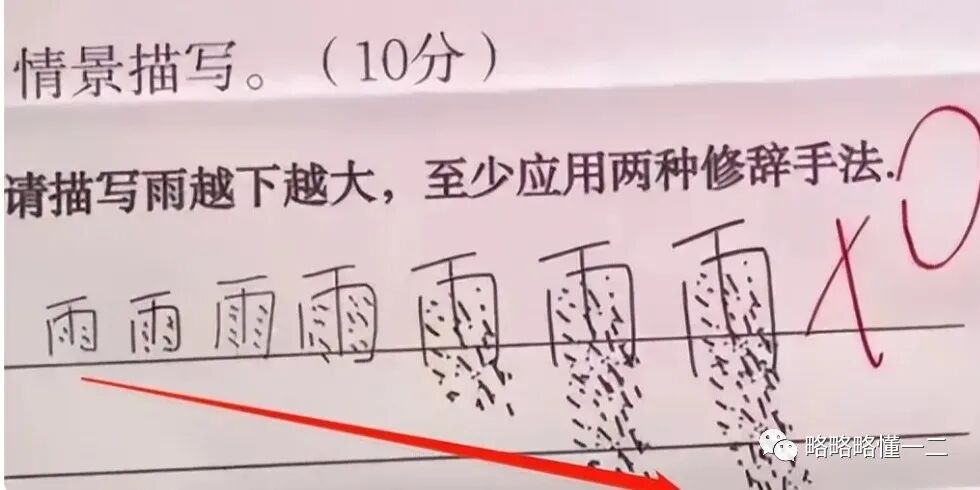 情景描写。（10分）
请描写雨越下越大，至少应用两种修辞手法.
雨 雨 雨 雨 雨 雨 雨 × 0
略略略懂一二